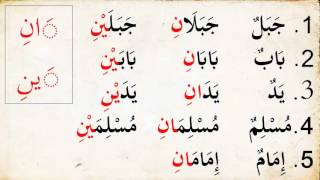 1. جَبَلٌ جَبَلَانِ جَبَلَيْنِ
2. بَابٌ بَابَانِ بَابَيْنِ
3. يَدٌ يَدَانِ يَدَيْنِ
4. مُسْلِمٌ مُسْلِمَانِ مُسْلِمَيْنِ
5. إِمَامٌ إِمَامَانِ
◌َانِ
◌َينِ